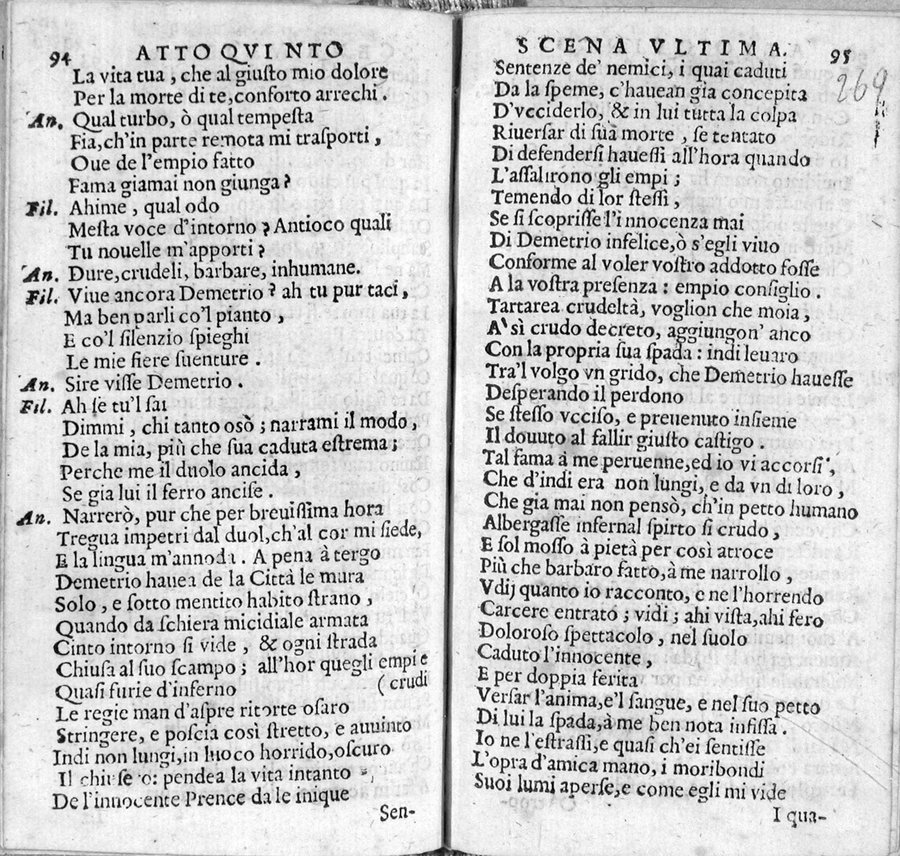 94 ATTO QVINTO
La vita tua, che al giuſto mio dolore
Per la morte di te, conforto arrechi.
An. Qual turbo, ò qual tempeſta
Fia, ch'in parte remota mi traſporti,
Oue de l'empio fatto
Fama giamai non giunga?
Fil. Ahime, qual odo
Meſta voce d'intorno? Antioco quali
Tu nouelle m'apporti?
An. Dure, crudeli, barbare, inhumane.
Fil. Viue ancora Demetrio? ah tu pur taci,
Ma ben parli co'l pianto,
E co'l ſilenzio ſpieghi
Le mie fiere ſuenture.
An. Sire viſſe Demetrio.
Fil. Ah ſe tu'l ſai
Dimmi, chi tanto osò; narrami il modo,
De la mia, più che ſua caduta eſtrema;
Perche me il duolo ancida,
Se gia lui il ferro anciſe.
An. Narrerò, pur che per breuiſſima hora
Tregua impetri dal duol, ch'al cor mi ſiede,
E la lingua m'annoda. A pena à tergo
Demetrio hauea de la Città le mura
Solo, e ſotto mentito habito ſtrano,
Quando da ſchiera micidiale armata
Cinto intorno ſi vide, & ogni ſtrada
Chiuſa al ſuo ſcampo; all'hor quegli empi e
Quaſi furie d'inferno (crudi
Le regie man d'aſpre ritorte oſaro
Stringere, e poſcia così ſtretto, e auuinto
Indi non lungi, in luoco horrido, oſcuro
Il chiuſero: pendea la vita intanto
De l'innocente Prence da le inique
Sen-
SCENA VLTIMA. 95
269
Sentenze de' nemici, i quai caduti
Da la ſpeme, c'hauean gia concepita
D'vcciderlo, & in lui tutta la colpa
Riuerſar di ſuà morte, ſe tentato
Di defenderſi haueſſi all'hora quando
L'aſſalirono gli empi;
Temendo di lor ſteſſi,
Se ſi scopriſſe l'innocenza mai
Di Demetrio infelice, ò s'egli viuo
Conforme al voler voſtro addotto foſſe
A la voſtra preſenza: empio conſiglio.
Tartarea crudeltà, voglion che moia,
A' sì crudo decreto, aggiungon' anco
Con la propria ſua ſpada: indi leuaro
Tra'l volgo vn grido, che Demetrio haueſſe
Deſperando il perdono
Se ſteſſo vcciſo, e preuenuto inſieme
Il douuto al fallir giuſto caſtigo.
Tal fama à me peruenne, ed io vi accorſi,
Che d'indi era non lungi, e da vn di loro,
Che gia mai non pensò, ch'in petto humano
Albergaſſe infernal ſpirto ſi crudo,
E ſol moſſo à pietà per così atroce
Più che barbaro fatto, à me narrollo,
Vdij quanto io racconto, e ne l'horrendo
Carcere entrato; vidi; ahi viſta, ahi fero
Doloroſo ſpettacolo, nel ſuolo
Caduto l'innocente,
E per doppia ferita
Verſar l'anima, e'l ſangue, e nel ſuo petto
Di lui la ſpada, à me ben nota infiſſa.
Io ne l'eſtraſſi, e quaſi ch'ei ſentiſſe
L'opra d'amica mano, i moribondi
Suoi lumi aperſe, e come egli mi vide
I qua-